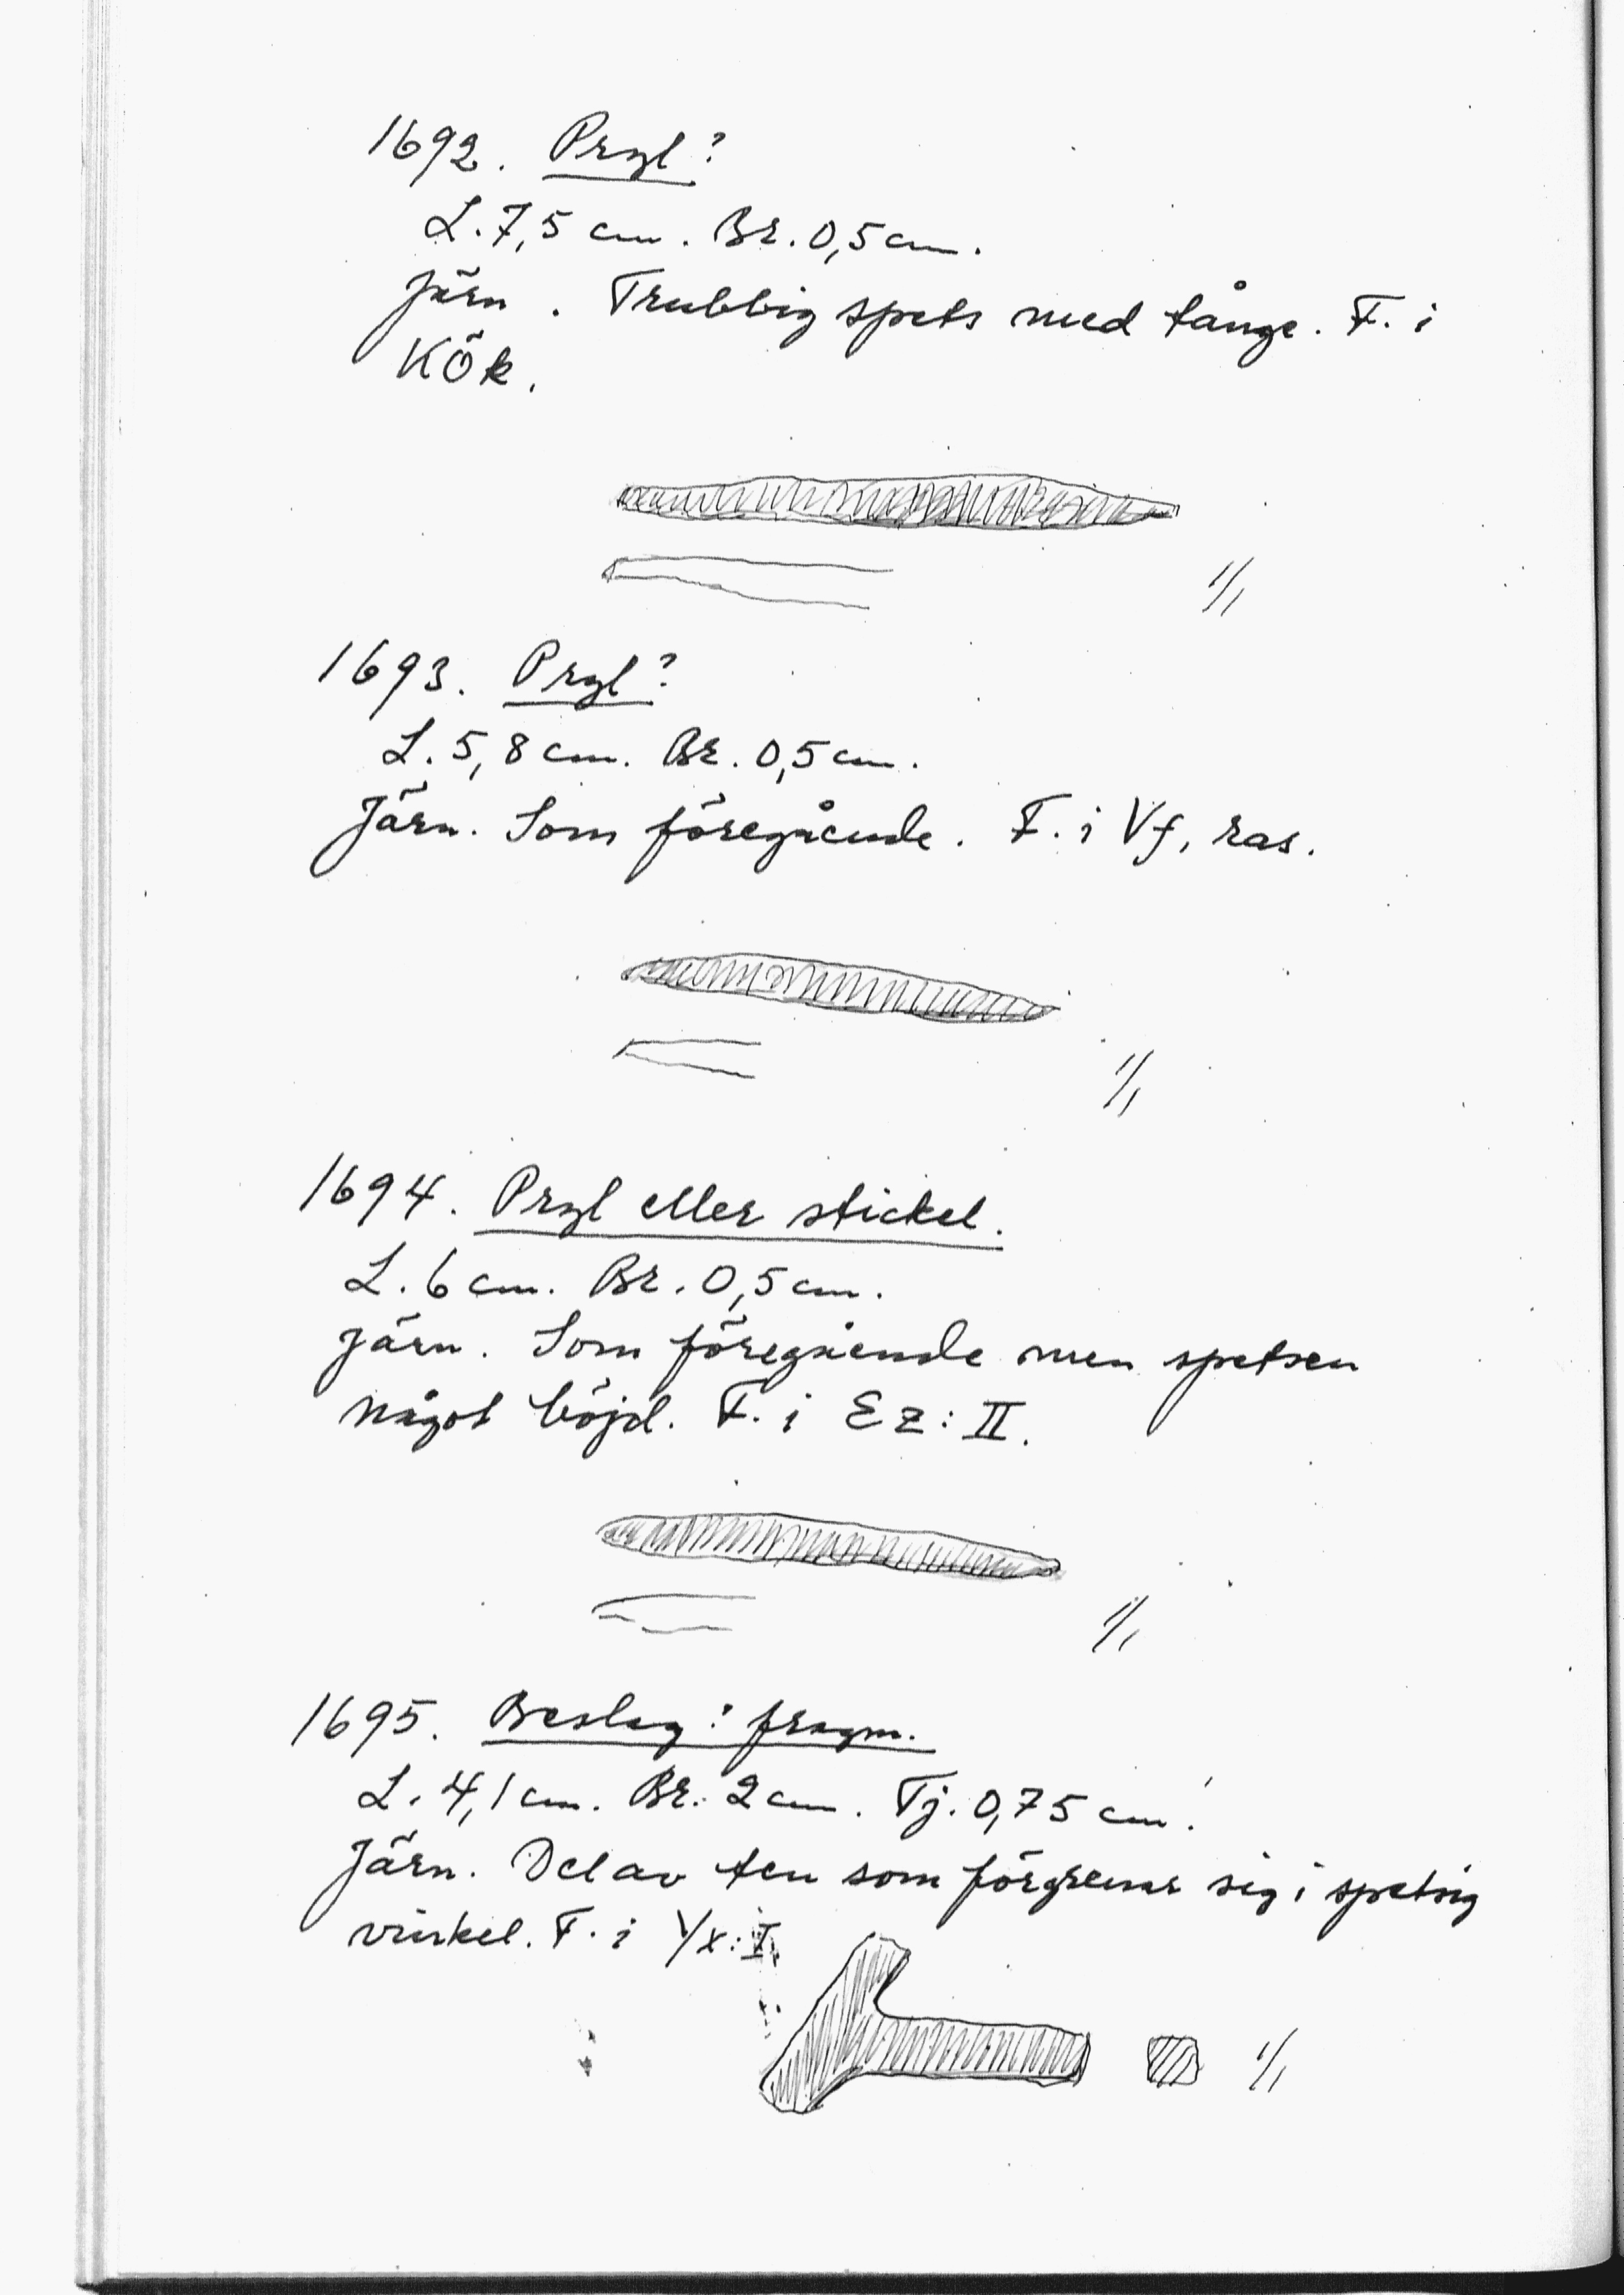 1692. Pryl?
L. 7,5 cm. Br. 0,5 cm.
Järn. Trubbig spets med tånge. F. i
Kök.
1/1
1693. Pryl?
L. 5,8 cm. Br. 0,5 cm.
Järn. Som föregående. F. i Vf, ras.
1/1
1694. Pryl eller stickel.
L. 6 cm. Br. 0,5 cm.
Järn. Som föregående men spetsen
något böjd. F. i Ez: II.
1/1
1695. Beslag? fragm.
L. 4,1 cm. Br. 2 cm. Tj. 0,75 cm.
Järn. Del av ten som förgrenar sig i spetsig
vinkel. F. i Yx: I.
1/1